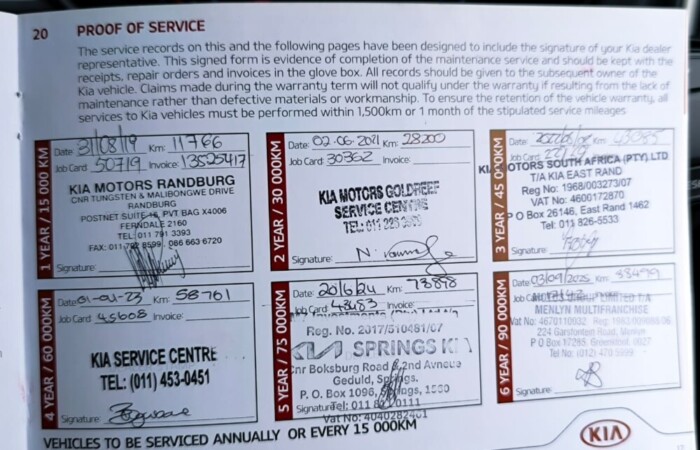 20 PROOF OF SERVICE
The service records on this and the following pages have been designed to include the signature of your Kia dealer
representative. This signed form is evidence of completion of the maintenance service and should be kept with the
receipts, repair orders and invoices in the glove box. All records should be given to the subsequent owner of the
Kia vehicle. Claims made during the warranty term will not qualify under the warranty if resulting from the lack of
maintenance rather than defective materials or workmanship. To ensure the retention of the vehicle warranty, all
services to Kia vehicles must be performed within 1,500km or 1 month of the stipulated service mileages
1 YEAR / 15 000KM
Date: 31/08/19 Km: 11766
Job Card: 50719 Invoice: 13525417
KIA MOTORS RANDBURG
CNR TUNGSTEN & MALIBONGWE DRIVE
RANDBURG
POSTNET SUITE 16, PVT BAG X4006
FERNDALE 2160
TEL: 011 791 3393
FAX: 011 792 8599, 086 663 6720
Signature:
2 YEAR / 30 000KM
Date: 02-06-2021 Km: 28200
Job Card: 30362 Invoice:
KIA MOTORS GOLDREEF
SERVICE CENTRE
TEL: 011
Signature:
3 YEAR / 45 000KM
Date: Km:
Job Card:
KIA MOTORS SOUTH AFRICA (PTY) LTD
T/A KIA EAST RAND
Reg No: 1968/003273/07
VAT No: 4600172870
P O Box 26146, East Rand 1462
Tel: 011 826-5533
Signature:
4 YEAR / 60 000KM
Date: 01-01-23 Km: 58761
Job Card: 45608 Invoice:
KIA SERVICE CENTRE
TEL: (011) 453-0451
Signature:
5 YEAR / 75 000KM
Date: 20/6/24 Km: 73898
Job Card: 43683 Invoice:
Reg. No. 2017/510481/07
KIA SPRINGS KIA
Cnr Boksburg Road & 2nd Avneue
Geduld, Springs.
P. O. Box 1096, Springs, 1560
Signature: Tel: 011 0111
Vat No: 4040282401
6 YEAR / 90 000KM
Date: 03/09/2025 Km: 88499
Job Card:
MENLYN MULTIFRANCHISE
Vat No: 4670110032
224 Garsfontein Road, Menlyn
P O Box 17285, Groenkloof, 0027
Tel No: (012) 470 5999
Signature:
VEHICLES TO BE SERVICED ANNUALLY OR EVERY 15 000KM
KIA